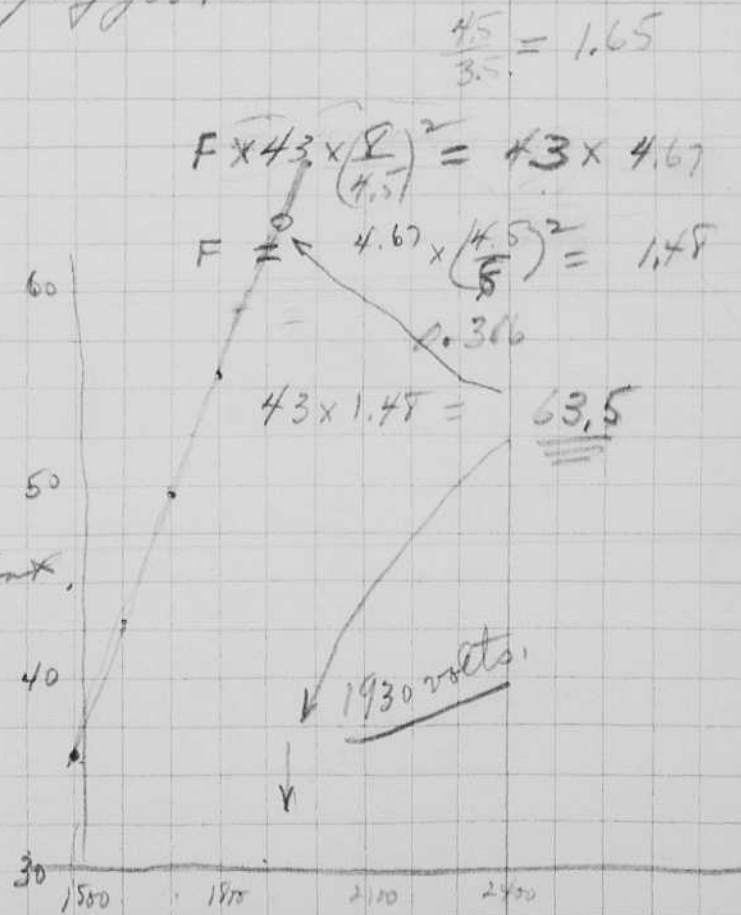 4.5/3.5. = 1.65
F × 43 × (8/4.5)² = 43 × 4.67
F = 4.67 × (4.5/8)² = 1.48
60
43 × 1.48 = 63,5
50
40
1930 volts.
30
1500 1800 2100 2400